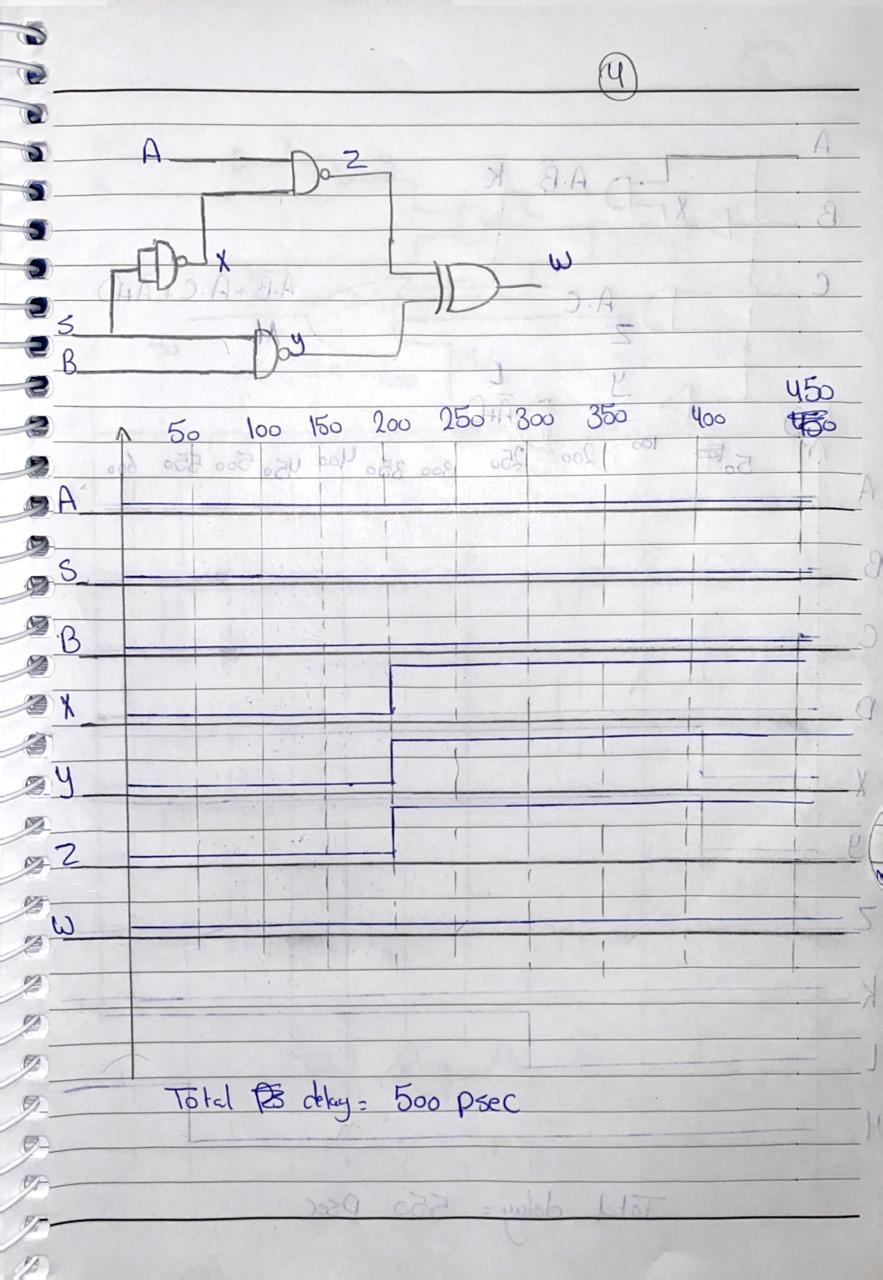 4
A Z
X W
S
B y
450
50 100 150 200 250 300 350 400 450
A
S
B
X
Y
Z
W
Total delay = 500 psec